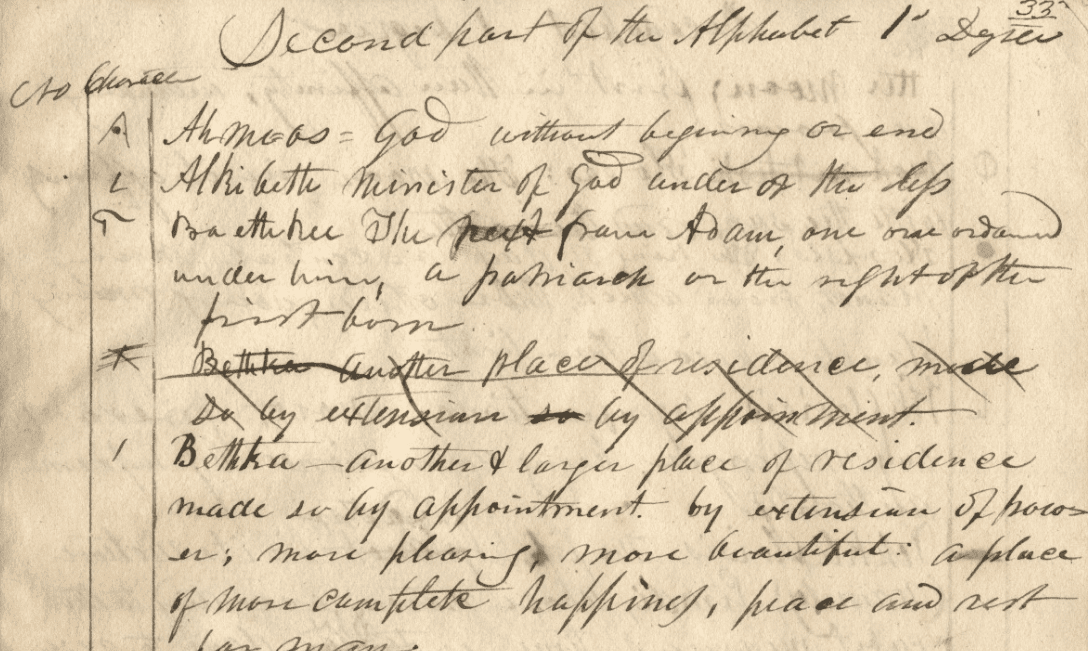 33
Second part of the Alphabet 1st Degree
No Character
Ahmeos = God without begining or end
Alkibeth Minister of God under or the less
Baethkee The next from Adam, one ordained
under him, a patriarch or the right of the
first born
Bethka another place of residence, made
so by extension so by appointment.
Bethka — another & larger place of residence
made so by appointment. by extension of pow=
er; more pleasing, more beautiful: a place
of more complete happiness, peace and rest
for man.